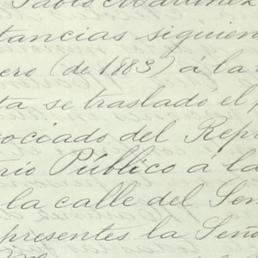 Pablo Martinez
tancias siguien
ero (de 1883) á la
ta se traslado el
ociado del Repr
rio Público á la
la calle del Sen
presentes la Seño